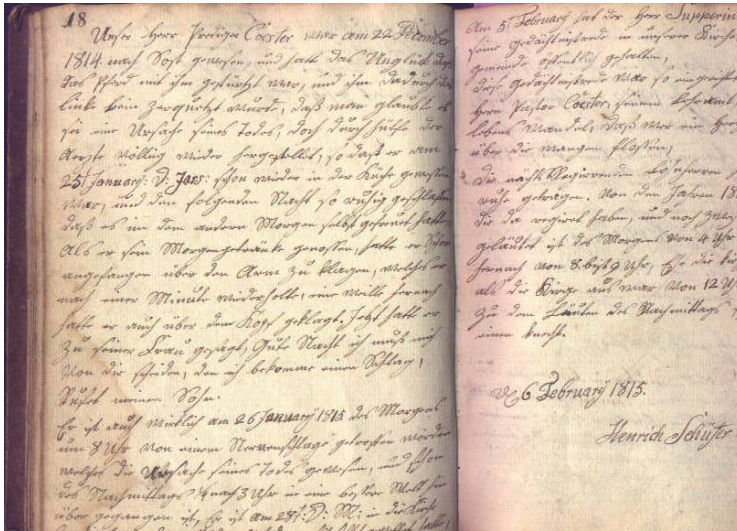 18
Unser Herr Prediger Coester war am 22 December
1814 nach Sost gewesen, und hatte das Unglück daß
das Pferd mit ihm gestürtzt war, und ihm dadurch das
linke bein zerquetzt wurde, daß man glaubte es
sei eine Ursache seines Todes, doch durch hülfe der
Aerzte völlig wieder hergestellet, so daß er am
25 January: D: Jars: schon wieder in der Kirche gewesen
war, und den folgenden Nacht so ruhig geschlafen
daß er im dem andern Morgen selbst gefreut hatte
Als er sein Morgengetränke genossen, hatte er schon
angefangen über den Arm zu klagen, welches er
nach einer Minute wiederholte, eine weile hernach
hatte er auch über den Kopf geklagt, jetzt hatte er
zu seiner Frau gesagt, Gute Nacht ich muß mich
von dir scheiden, den ich bekomme einen Schlag,
Rufet meinen Sohn.
Er ist auch wirklich am 26 January 1815 des Morgens
um 8 Uhr von einem Nervenschlage getroffen worden
welches die Ursache seines Todes gewesen, und schon
des Nachmittags nach 3 Uhr in eine bessere Welt hin
über gegangen ist, Er ist am 28t: D: M: in die Kirche
Am 5t February hat der Herr Supperin
seine Gedächtnißrede in unserer Kirche
gemeinde öffentlich gehalten,
diese Gedächtnißrede war so eingerichtet
Herrn Pastor Coester, seinem Lehramt,
lebens Wandel, daß wor ein
über die wangen flossen,
die nächst Regierenden
ruhe getragen. Von den Jahren 18
die da regiret haben, und noch zwey
geläutet ist des Morgens von 4 Uhr
hernach von 8 bis 9 Uhr, Ehe die
als die Kirche aus war von 12 Uh
zu dem Läuten des Nachmittags
einen knecht.
D 6 February 1815.
Henrich Schüfer